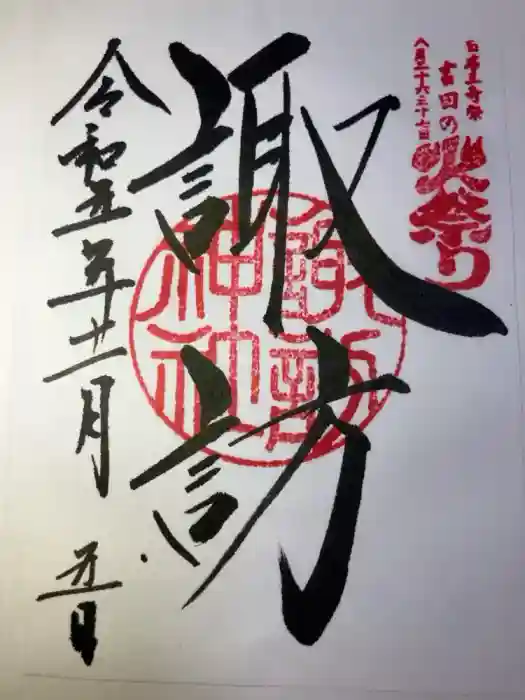 日本三奇祭
吉田の
火祭り
八月二十六二十七日
諏訪
諏訪
神社
令和五年十一月
五日